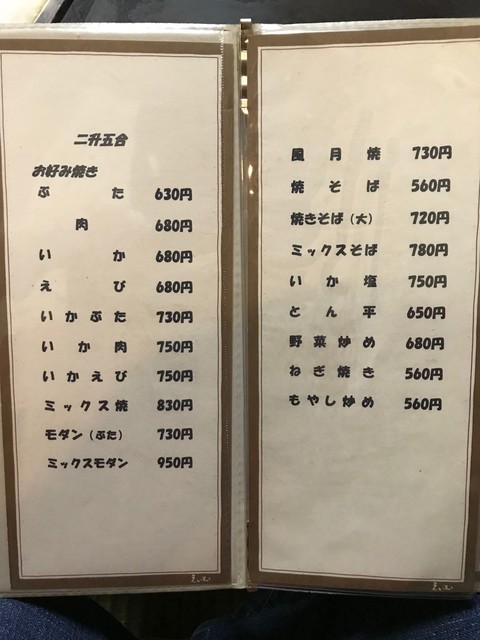 二升五合
お好み焼き
ぶた 630円
肉 680円
いか 680円
えび 680円
いかぶた 730円
いか肉 750円
いかえび 750円
ミックス焼 830円
モダン(ぶた) 730円
ミックスモダン 950円
風月焼 730円
焼そば 560円
焼きそば(大) 720円
ミックスそば 780円
いか塩 750円
とん平 650円
野菜炒め 680円
ねぎ焼き 560円
もやし炒め 560円